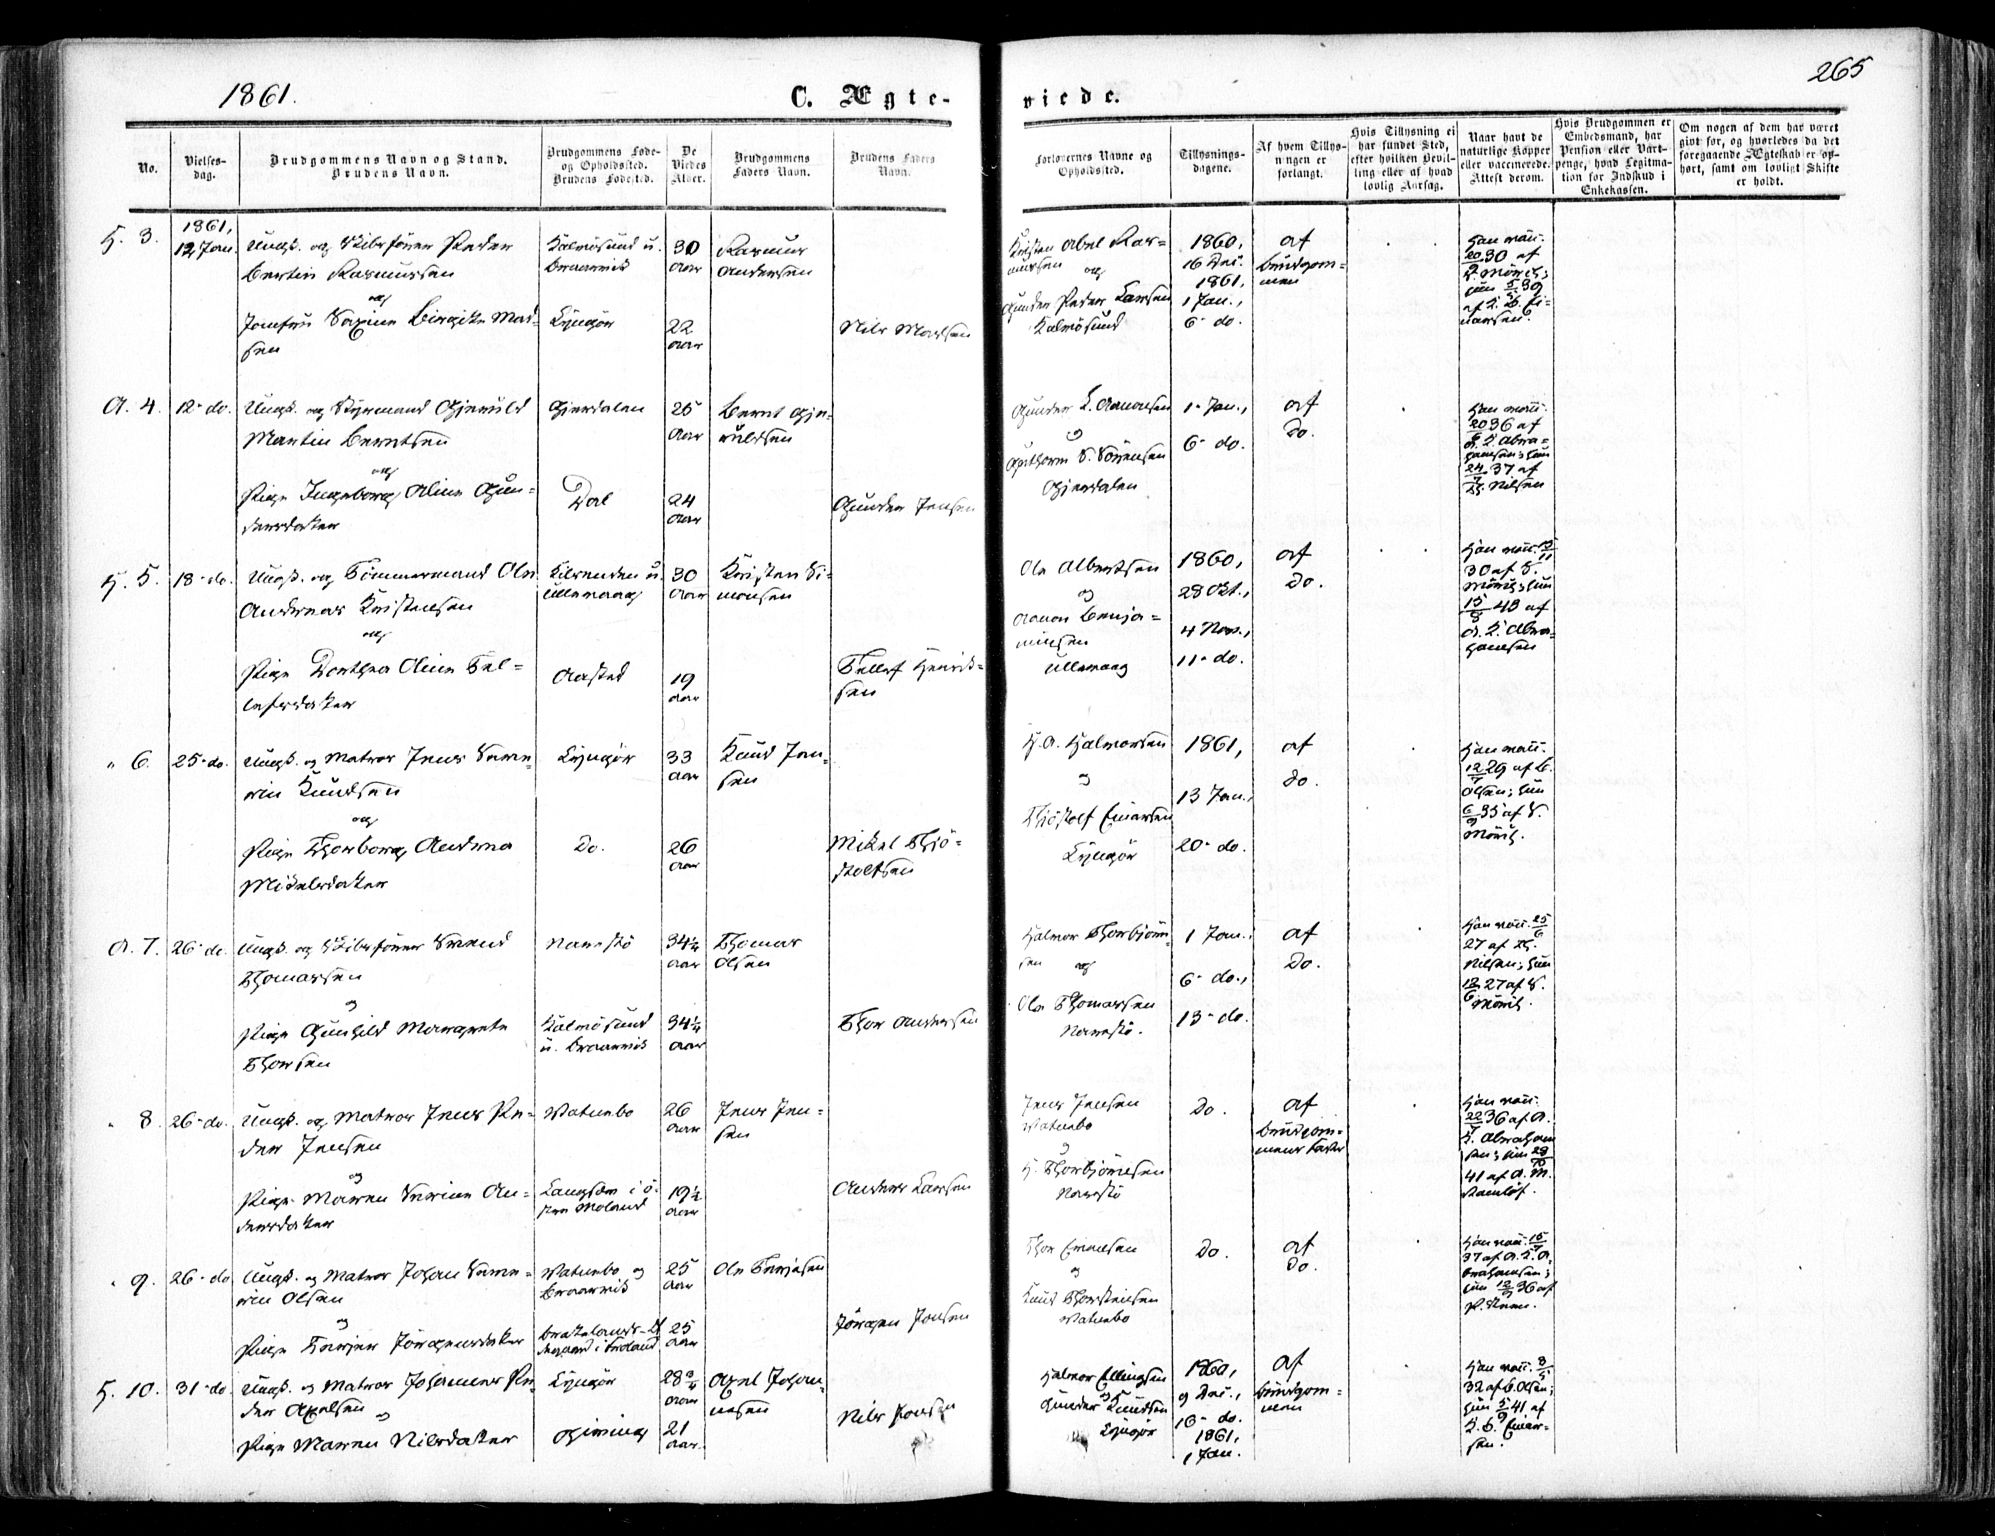 1861.
C. Ægte-
viede.
265
No.
Vielses-
dag.
Brudgommens Navn og Stand.
Brudens Navn.
Brudgommens Føde-
og Opholdssted.
Brudens Fødested.
De
Viedes
Alder.
Brudgommens
Faders Navn.
Brudens Faders
Navn.
Forlovernes Navne og
Opholdssted.
Tillysnings-
dagene.
Af hvem Tillys-
ningen er
forlangt.
Hvis Tillysning ei
har fundet Sted,
efter hvilken Bevil-
ling eller af hvad
lovlig Aarsag.
Naar havt de
naturlige Kopper
eller vaccinerede.
Attest derom.
Hvis Brudgommen er
Embedsmand, har
Pension eller Vart-
penge, hvad Legitima-
tion for Indskud i
Enkekassen.
Om nogen af dem har været
gift før, og hvorledes da det
foregaaende Ægteskab er op-
hørt, samt om lovligt Skifte
er holdt.
H. 3.
1861,
12 Jan.
Ungk. og Skibsfører Peder
Bertin Rasmussen
og
Jomfru Sxxx Birgitte Mad-
sen
Kalvøsund u.
Braarvik
Lyngør
30
Aar
22
Aar
Rasmus
Andersen
Nils Madsen
Kristen Abel Ras-
mussen og
Gunder Peder Larsen
Kalvøsund
1860,
16 Dec.
1861,
1 Jan.,
6- do.
af
Brudgom-
men
Han vacc.
30 af
Mørch;
hun 39
A. 4.
12- do.
Ungk. og Styrmand Gjeruld
Martin Berntsen
og
Pige Ingeborg Oline Gun-
dersdatter
Gjerdalen
Dal
25
Aar
24
Aar
Bernt Gje-
ruldsen
Gunder Jensen
Gunder L. Aanonsen
og
Guthorm S. Sørensen
Gjerdalen
1- Jan.,
6- do.
af
Do.
Han vacc.
36 af
Abra-
hamsen; hun
37 af
Nilsen
H. 5.
18- do.
Ungk. og Tømmermand Ole
Andreas Kristensen
og
Pige Dorthea Oline Tel-
lefsdatter
Ullevaag
Aasted
30
Aar
19
Aar
Kristen Si-
monsen
Tellef Henrik-
sen
Ole Albertsen
og
Aanon Benja-
minsen
Ullevaag
1860,
28 Okt.,
4 Nov.,
11- do.
af
Do.
Han vacc. 15/11
30 af S.
Mørch; hun
15/8 43 af
A. L. Abra-
hamsen
" 6.
25- do.
Ungk. og Matros Jens Seve-
rin Knudsen
og
Pige Thorborg Andrea
Mikelsdatter
Lyngør
Do.
33
Aar
26
Aar
Knud Jen-
sen
Mikel Thjø-
stolfsen
H. A. Halvorsen
og
Thjøstolf Einarsen
Lyngør
1861,
13 Jan.,
20- do.
af
do.
Han vacc.
12/7 29 af B.
Olsen; hun
6/9 35 af S.
Mørch.
A. 7.
26- do.
Ungk. og Skibsfører Svend
Thomassen
og
Pige Gunhild Margrete
Thorsen
Narestø
Kalvøsund
u. Braarvik
34½
Aar
34¼
Aar
Thomas
Olsen
Thor Andersen
Halvor Thorbjørn-
sen og
Ole Thomassen
Narestø.
1 Jan.,
6- do.,
13- do.
af
Do.
Han vacc. 25/6
27 af Th.
Nilsen; hun
27 af S.
Mørch.
" 8.
26- do.
Ungk. og Matros Jens Pe-
der Jensen
og
Pige Maren Serine An-
dersdatter
Vatnebo
Langsæ i ø-
stre Moland
26
Aar
19½
Aar
Jens Jen-
sen
Anders Larsen
Jens Jensen
Vatnebo
og
H. Thorbjørnsen
Narestø
Do.
af
Brudgom-
mens Fader
Han vacc.
22/7 36 af A.
L. Abraham
sen; hun
41 af A. M.
" 9.
26- do.
Ungk. og Matros Johan Seve-
rin Olsen
og
Pige Karjer Jørgensdatter
Vatnebo og
Braarvik
25
Aar
25
Aar
Ole Terjesen
Jørgen Jonsen
Thor Einarsen
og
Knud Thorsteinsen
Vatnebo
Do.
af
Do.
Han vacc.
37 af A. L. A-
brahamsen;
hun 36 af
P. Steen.
H. 10.
31- do.
Ungk. og Matros Johannes Pe-
der Axelsen
og
Pige Maren Nilsdatter
Lyngør
Gjeving
28¾
Aar
21
Aar.
Axel Johan-
nesen
Nils Jonsen
Halvor Ellingsen
og
Gunder Knudsen
Lyngør
1860,
9 Dec.,
16- do.
1861,
1 Jan.
af
Brudgom-
men
Han vacc.
32 af B. Olsen;
hun 41 af
L. B. Einar-
sen.